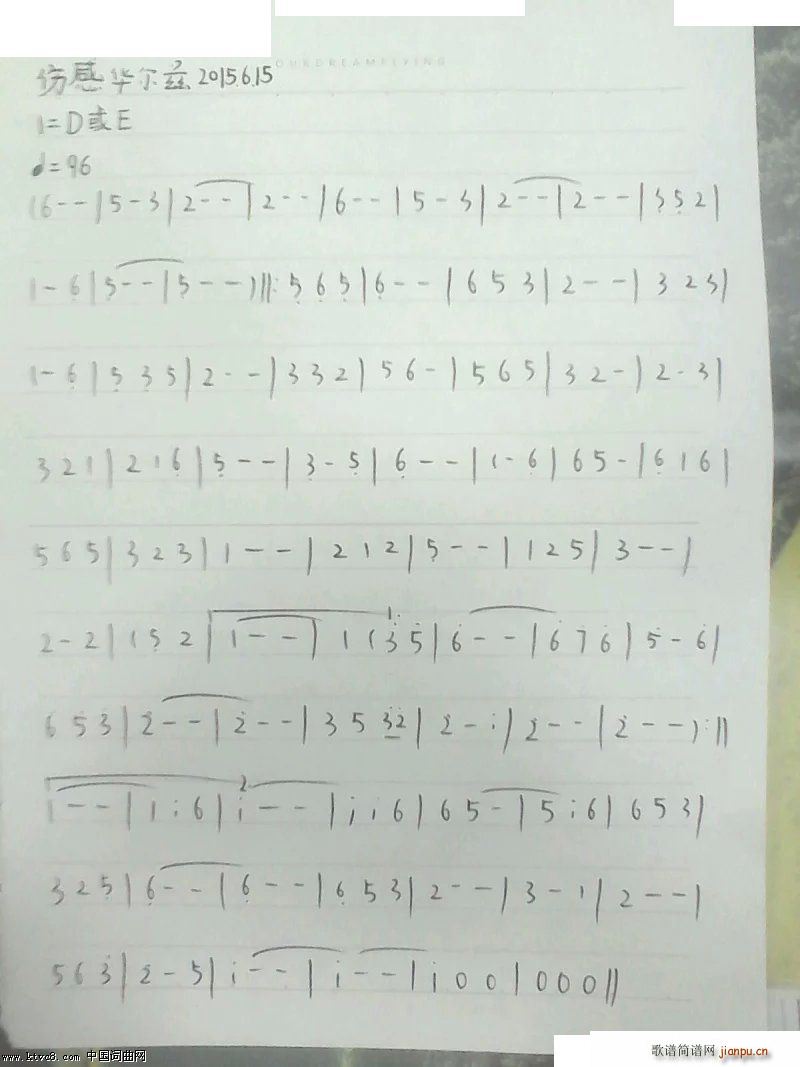 OURDREAMFLYING
伤感华尔兹 2015.6.15
1=D或E
♩=96
(6--|5-3|2--|2--|6--|5-3|2--|2--|3 5 2|
1-6|5--|5--)||:5 6 5|6--|6 5 3|2--|3 2 3|
1-6|5 3 5|2--|3 3 2|5 6-|5 6 5|3 2-|2-3|
3 2 1|2 1 6|5--|3-5|6--|1-6|6 5-|6 1 6|
5 6 5|3 2 3|1--|2 1 2|5--|1 2 5|3--|
2-2|1 5 2|1--|1 (3 5|6--|6 7 6|5-6|
6 5 3|2--|2--|3 5 32|2-i|2--|2--):||
1--|1 i 6|i--|i i 6|6 5-|5 i 6|6 5 3|
3 2 5|6--|6--|6 5 3|2--|3-1|2--|
5 6 3|2-5|i--|i--|i 0 0|0 0 0||
www.ktvc8.com 中国词曲网
歌谱简谱网 jianpu.cn